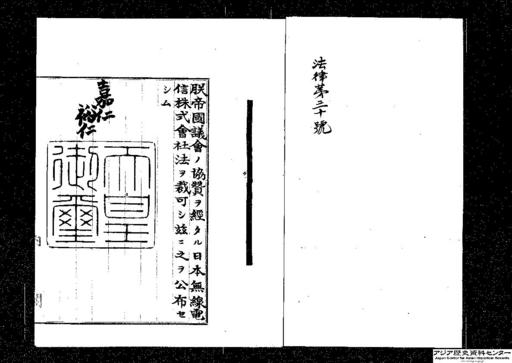 法律第三十號
朕帝國議會ノ協贊ヲ經タル日本無線電
信株式會社法ヲ裁可シ茲ニ之ヲ公布セ
シム
嘉仁
裕仁
天皇
御璽
アジア歴史資料センター
Japan Center for Asian Historical Records